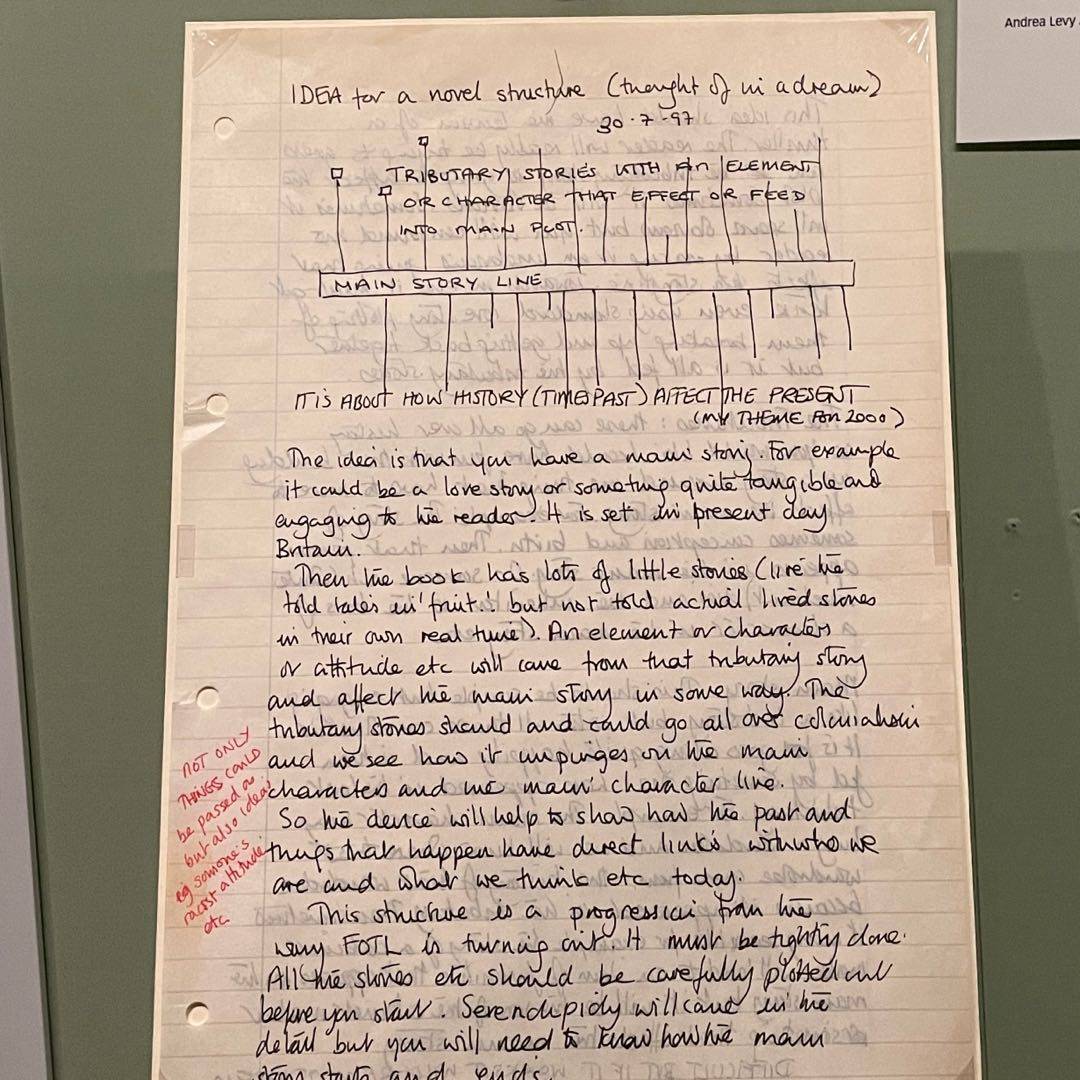 Andrea Levy
IDEA for a novel structure (thought of in a dream)
30·7·97
TRIBUTARY STORIES WITH AN ELEMENT
OR CHARACTER THAT EFFECT OR FEED
INTO MAIN PLOT.
MAIN STORY LINE
IT IS ABOUT HOW HISTORY (TIMES PAST) AFFECT THE PRESENT
(MY THEME FOR 2000)
The idea is that you have a main story. For example
it could be a love story or something quite tangible and
engaging to the reader. It is set in present day
Britain.
Then the book has lots of little stories (like the
told tales in 'fruit..' but not told actual lived stories
in their own real time). An element or characters
or attitude etc will come from that tributary story
and affect the main story in some way. The
tributary stories should and could go all over colonialism
and we see how it impinges on the main
characters and the main character line.
So the device will help to show how the past and
things that happen have direct links with who we
are and what we think etc today.
This structure is a progression from the
way FOTL is turning out. It must be tightly done.
All the stories etc should be carefully plotted out
before you start. Serendipidy will come in the
detail but you will need to know how the main
story starts and ends.
NOT ONLY
THINGS COULD
be passed on
but also ideas
eg someone's
racist attitude
etc